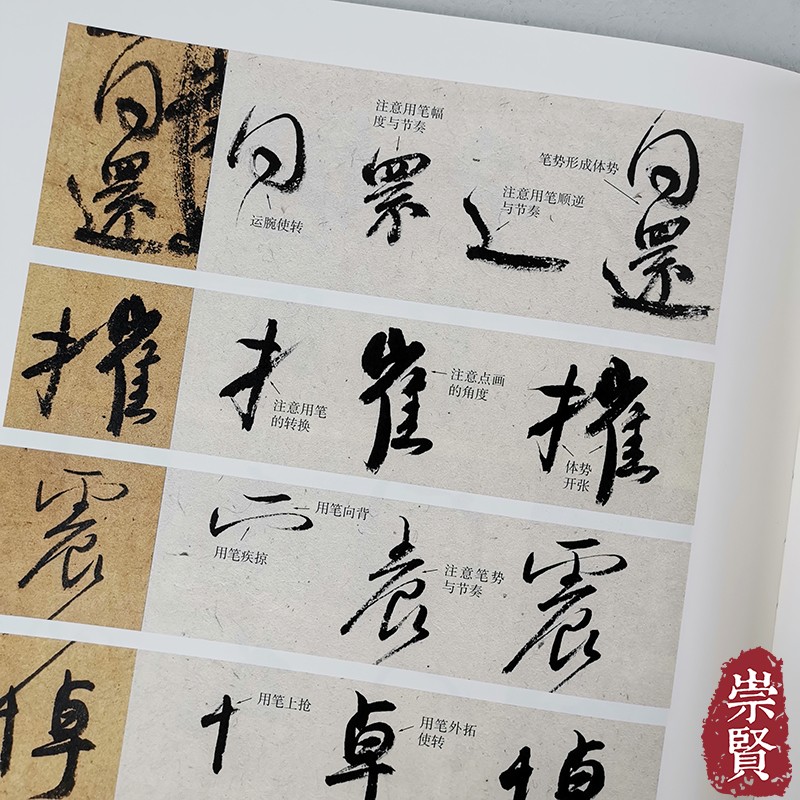 同還
同
還
注意用笔幅
度与节奏
运腕使转
注意用笔顺逆
与节奏
笔势形成体势
摧
崔
摧
注意用笔
的转换
注意点画
的角度
体势
开张
震
震
用笔向背
用笔疾掠
注意笔势
与节奏
悼
卓
悼
用笔上抢
用笔外拓
使转
崇賢